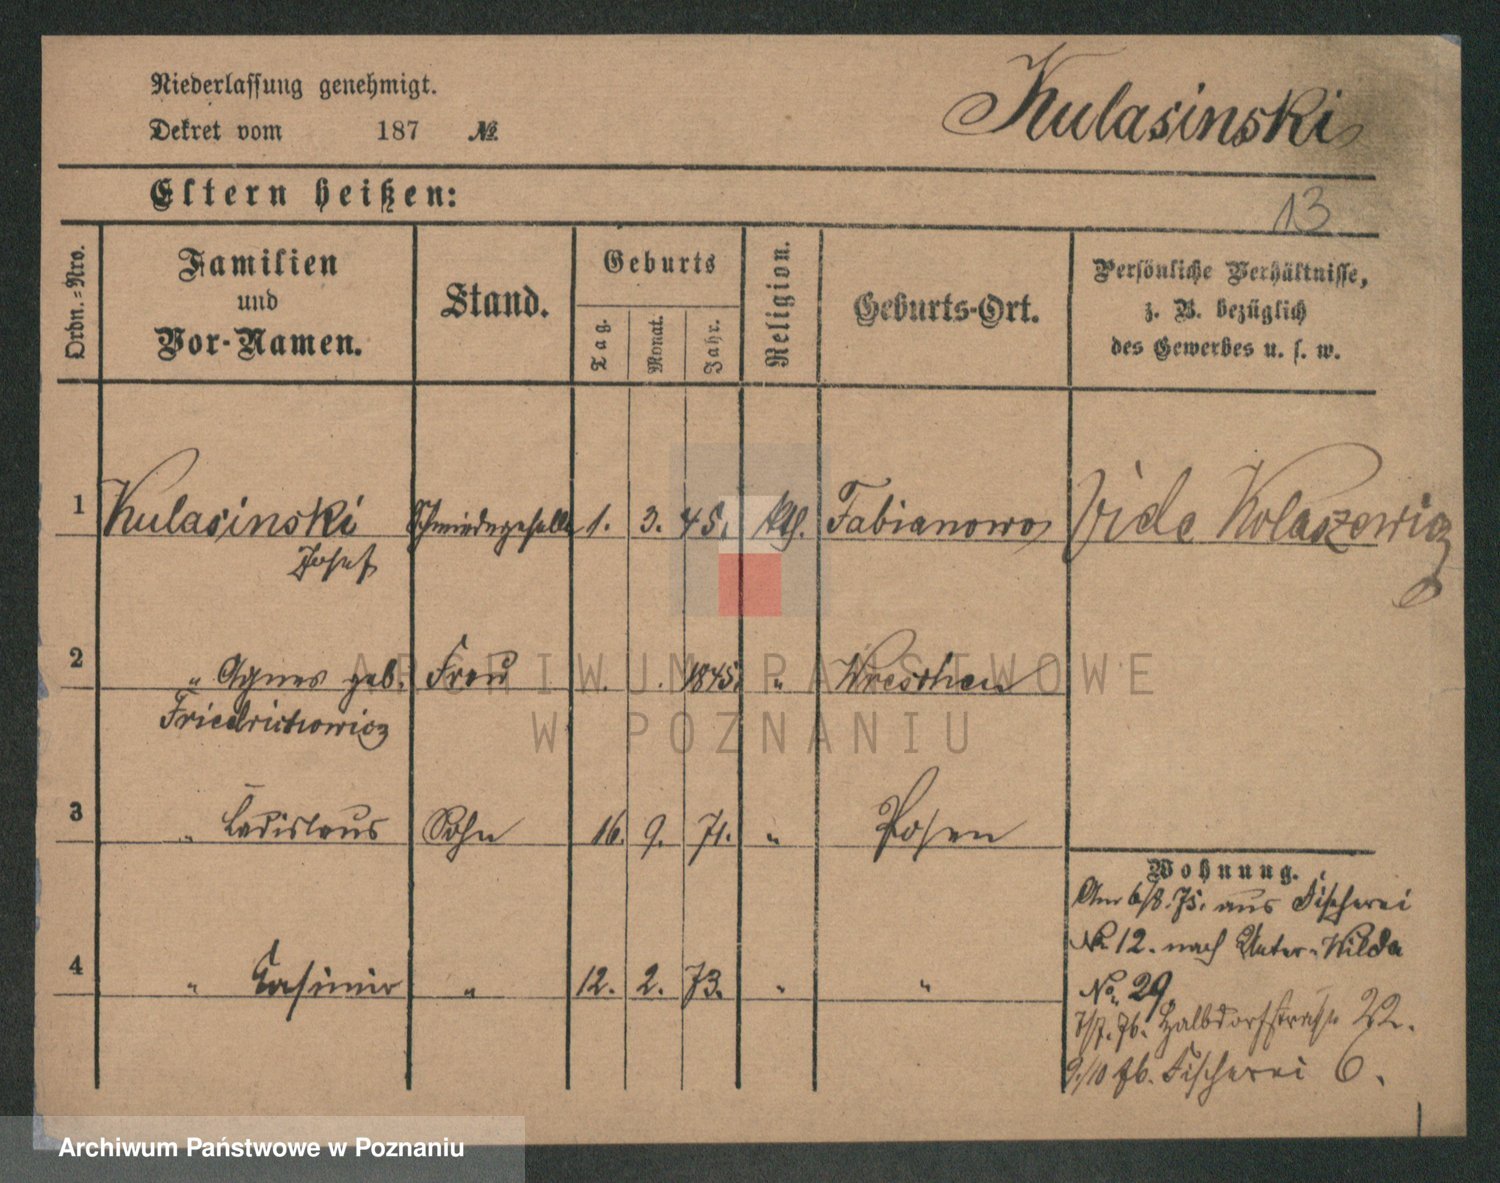 Niederlassung genehmigt.
Dekret vom 187 №
Kulasinski
Eltern heißen:
13
Ordn.=Nro.
Familien
und
Vor-Namen.
Stand.
Geburts
Tag.
Monat.
Jahr.
Religion.
Geburts-Ort.
Persönliche Verhältnisse,
z. B. bezüglich
des Gewerbes u. s. w.
1 Kulasinski Schmiedegeselle 1. 3. 45. kth. Fabianowo Vide Kolaszewicz
Josef
2 " Agnes geb. Frau . . 1845. " Wreschen
Friedrichowicz
3 " Ladislaus Sohn 16. 9. 71. " Posen
4 " Casimir " 12. 2. 73. " "
Wohnung.
Am 6/8. 75. aus Fischerei
No 12. nach Unter-Wilda
No. 29.
7/7. 76. Halbdorfstraße 22.
9/10 76. Fischerei 6.
ARCHIWUM PAŃSTWOWE
W POZNANIU
Archiwum Państwowe w Poznaniu